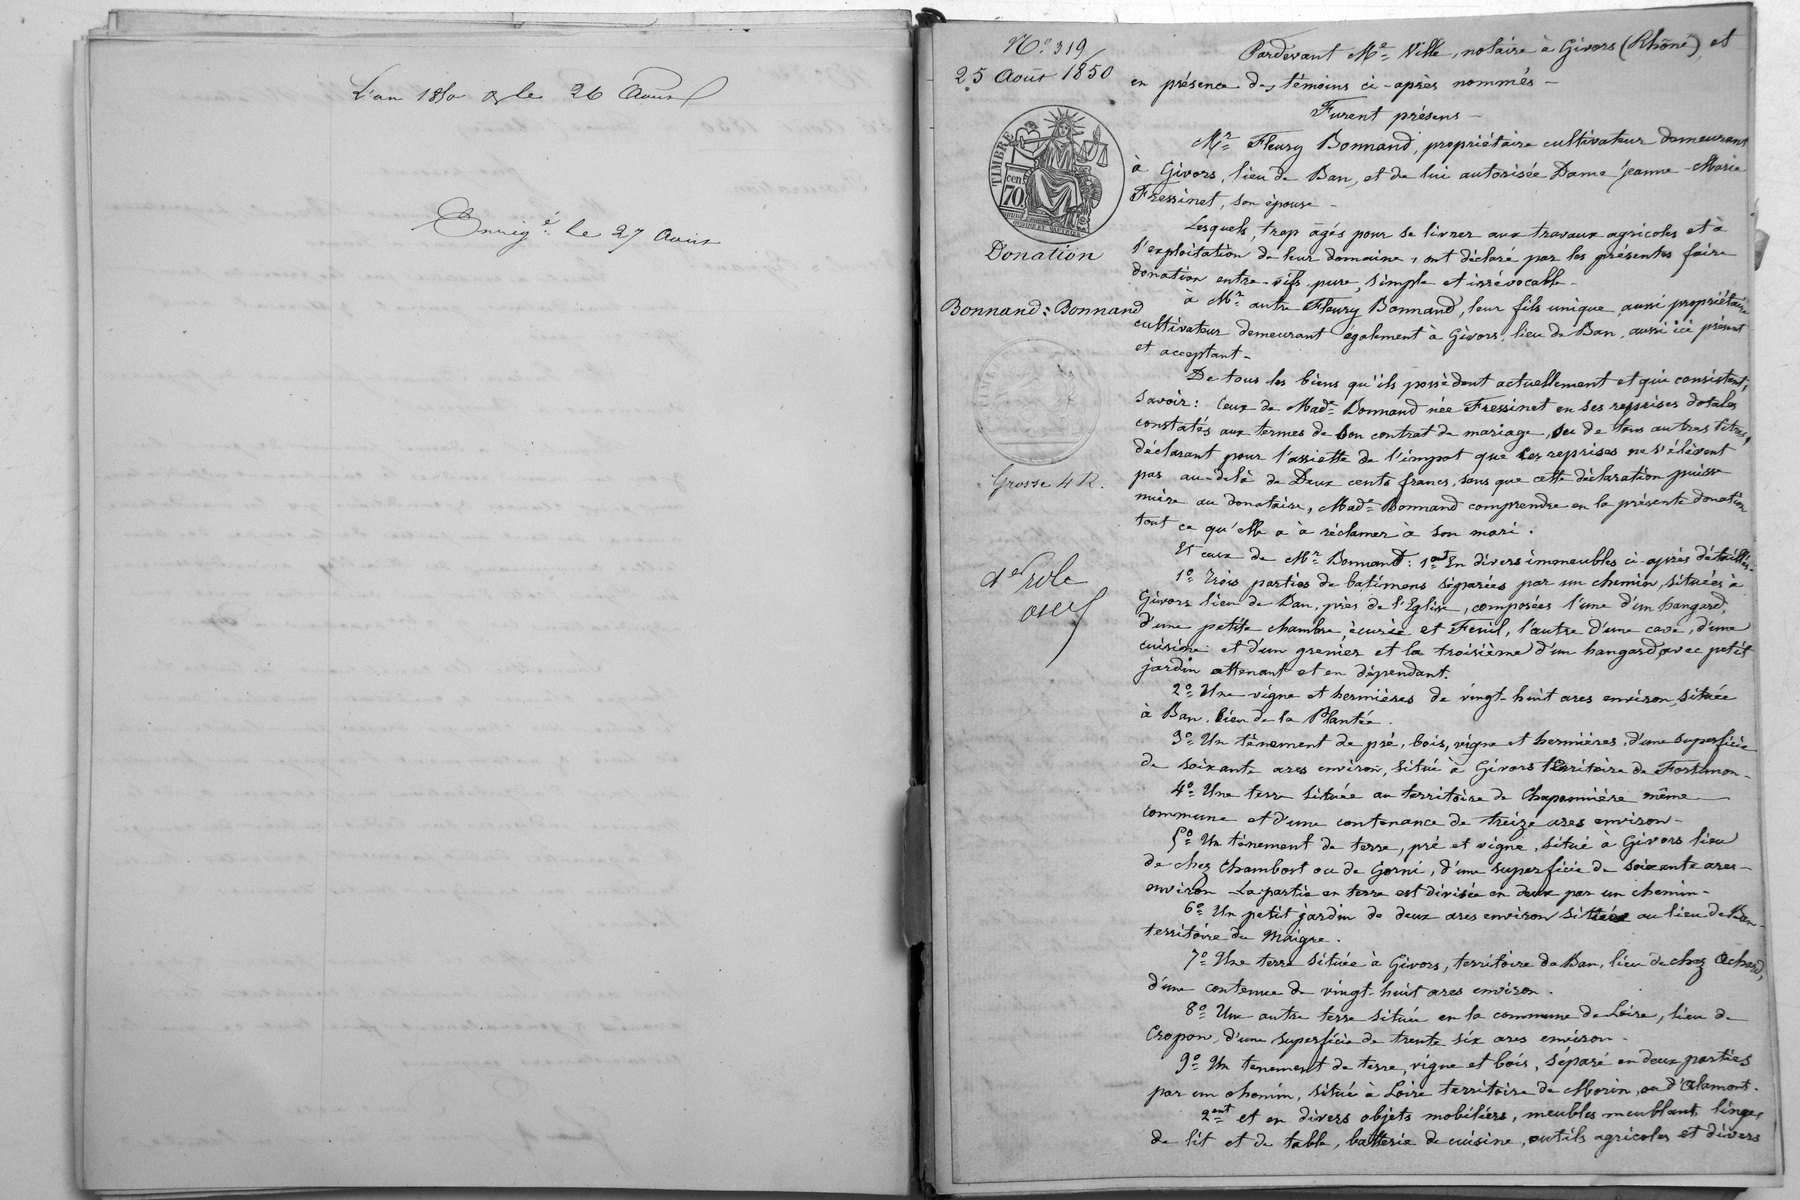 L'an 1850 & le 26 Août
Enreg.é le 27 Août
N.° 319
25 Août 1850
TIMBRE
cen
70
Donation
Bonnand = Bonnand
TIMBRE
Grosse 4 R.
1er role
Pardevant Me. Ville, notaire à Givors (Rhône) et
en présence des témoins ci-après nommés –
Furent présens –
Mr. Fleury Bonnand, propriétaire cultivateur demeurant
à Givors, lieu de Ban, et de lui autorisée Dame Jeanne Marie
Fressinet, son épouse –
Lesquels, trop âgés pour se livrer aux travaux agricoles et à
l'exploitation de leur domaine, ont déclaré par les présentes faire
donation entre-vifs, pure, simple et irrévocable –
à Mr. autre Fleury Bonnand, leur fils unique, aussi propriétaire
cultivateur demeurant également à Givors, lieu de Ban, aussi ici présent
et acceptant –
De tous les biens qu'ils possèdent actuellement et qui consistent,
savoir : Ceux de Made. Bonnand née Fressinet en ses reprises dotales
constatés aux termes de son contrat de mariage, ou de tous autres titres,
déclarant pour l'assiette de l'impot que ces reprises ne s'élèvent
pas au-delà de Deux cents francs, sans que cette déclaration puisse
nuire au donataire, Made. Bonnand comprendre en la présente donation
tout ce qu'elle a à réclamer à son mari.
Et ceux de Mr. Bonnand : 1ent En divers immeubles ci-après détaillés.
1° Trois parties de batimens séparées par un chemin, situées à
Givors lieu de Ban, près de l'Eglise, composées l'une d'un hangard,
d'une petite chambre, écurie et Fenil, l'autre d'une cave, d'une
cuisine et d'un grenier et la troisième d'un hangard avec petit
jardin attenant et en dépendant.
2° Une vigne et hermières de vingt-huit ares environ, située
à Ban, lieu de la Plantée.
3° Un tènement de pré, bois, vigne et hermières, d'une superficie
de soixante ares environ, situé à Givors territoire de Fortunon –
4° Une terre située au territoire de Chaponnière même
commune et d'une contenance de treize ares environ –
5° Un tènement de terre, pré et vigne, situé à Givors lieu
de chez Chambost ou de Gorni, d'une superficie de soixante ares
environ – La partie en terre est divisée en deux par un chemin –
6° Un petit jardin de deux ares environ située au lieu de Ban
territoire du Maigre.
7° Une terre située à Givors, territoire de Ban, lieu de chez Achard,
d'une contenue de vingt-huit ares environ.
8° Une autre terre située en la commune de Loire, lieu de
Cropon, d'une superficie de trente six ares environ –
9° Un tenement de terre, vigne et bois, séparé en deux parties
par un chemin, situé à Loire territoire de Morin, ou d'Alamont.
2ent et en divers objets mobiliers, meubles meublant, linges
de lit et de table, batterie de cuisine, outils agricoles et divers